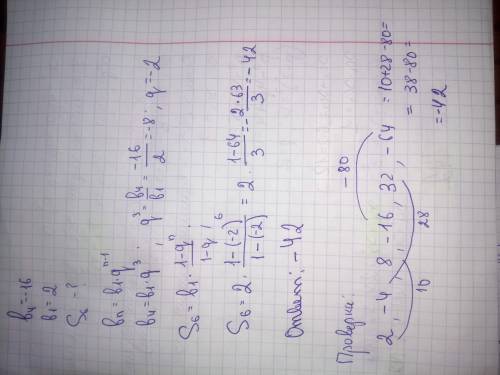 b₄=-16
b₁=2
S₆-?
bₙ=b₁·qⁿ⁻¹
b₄=b₁·q³ ; q³=b₄/b₁=-16/2=-8; q=-2
S₆=b₁·(1-qⁿ)/(1-q);
S₆=2·(1-(-2)⁶)/(1-(-2))=2·(1-64)/3=-(2·63)/3=-42
Ответ: -42
Проверка:
-80
2, -4, 8, -16, 32, -64 =10+28-80=
10 28 =38-80=
=-42